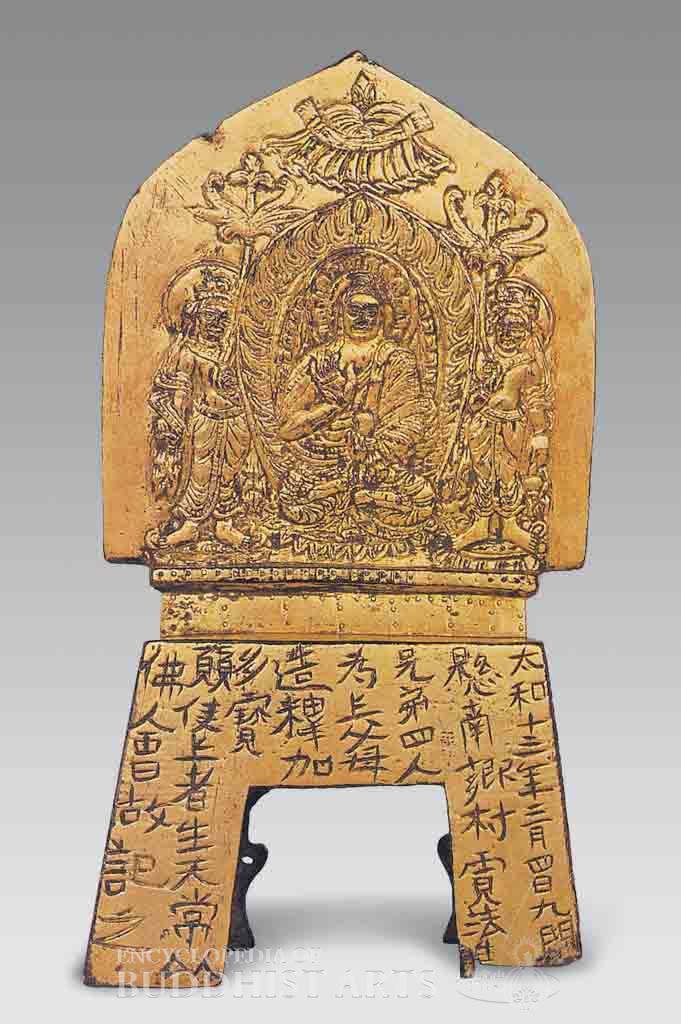 太和十三年三月四日九門
縣南鄉村賈法生
兄弟四人
為亡父母
造釋加
多寶
願使亡者生天常与
佛會故記之
ENCYCLOPEDIA OF
BUDDHIST ARTS